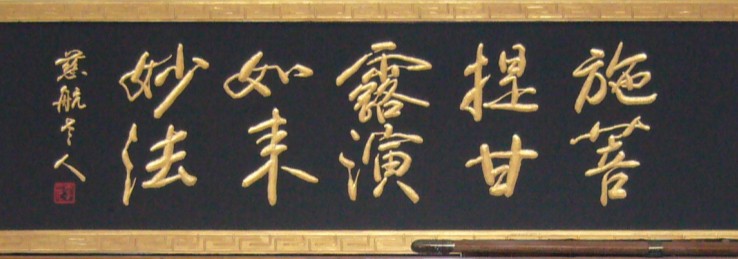 施菩
提甘
露演
如来
妙法
慈航老人